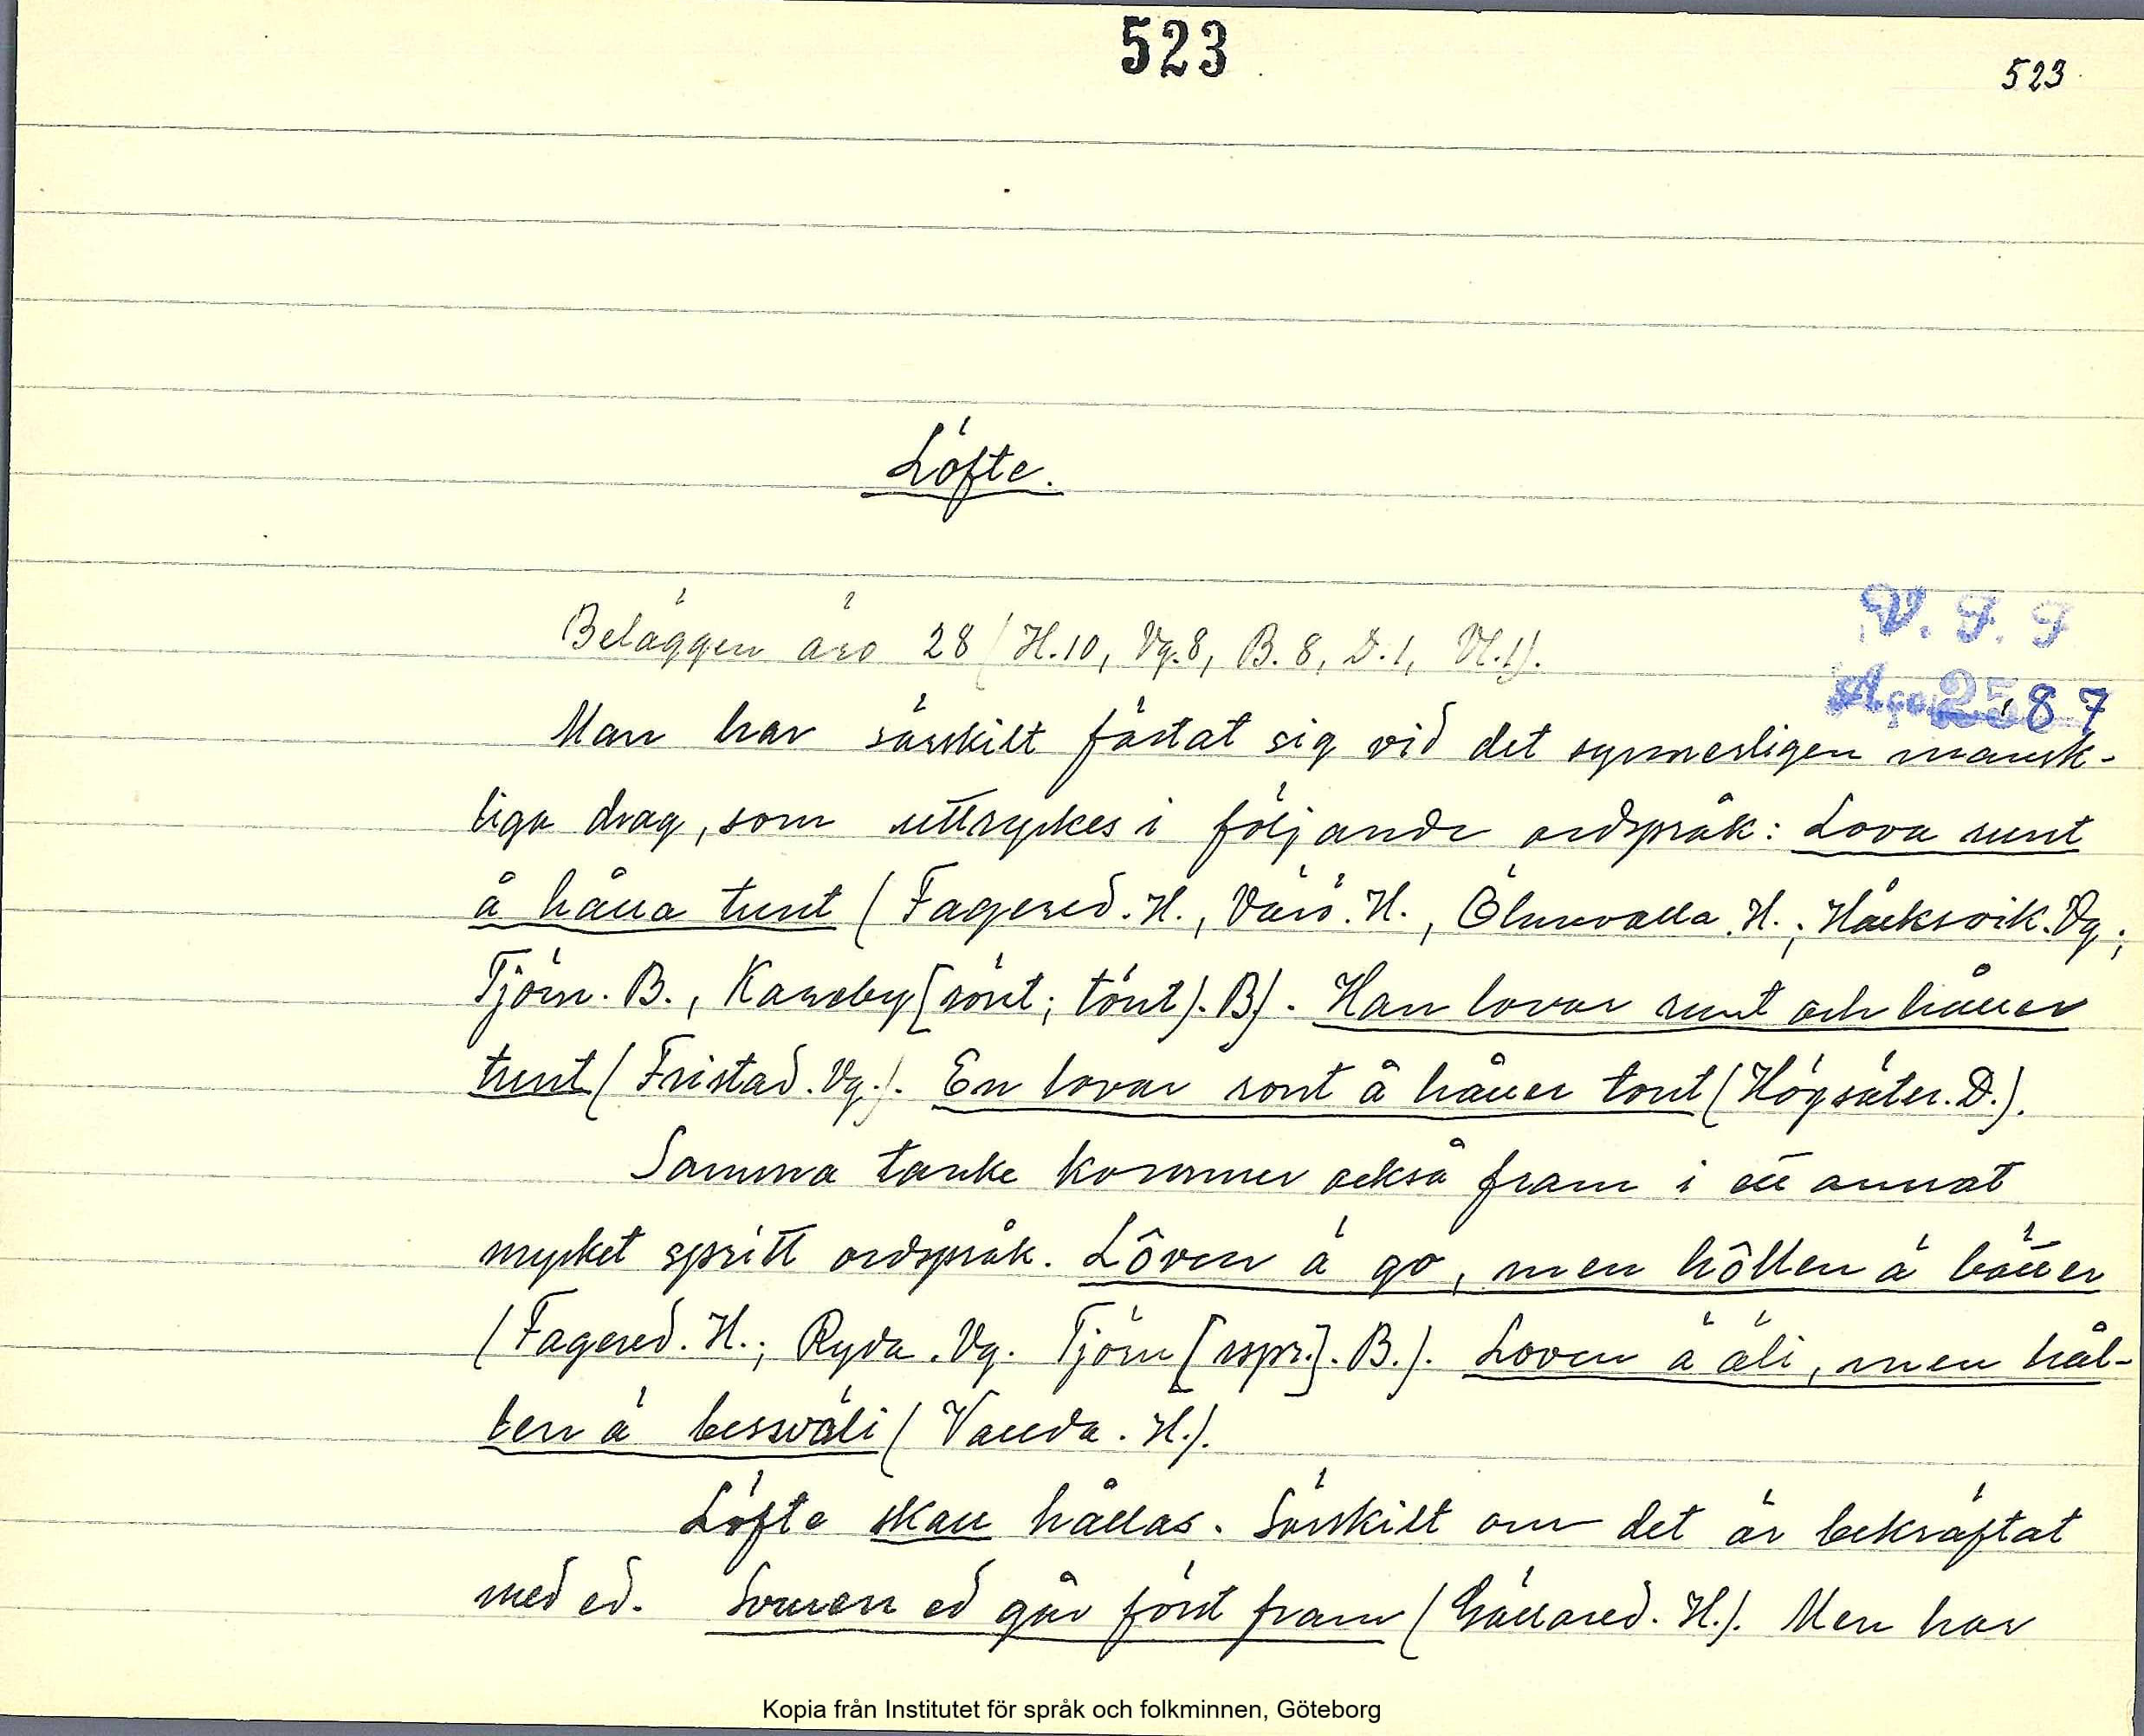 523
523
Löfte.
Beläggen äro 28 (H.10, Vg.8, B.8, D.1, Vl.1).
V. F. F
Acc. 2587
Man har särskilt fästat sig vid det synnerligen mänsk-
liga drag, som uttryckes i följande ordspråk: Lova runt
å hålla tunt (Fagered. H., Värö. H., Ölmevalla. H.; Håcksvik. Vg.;
Tjörn. B., Kareby [rönt; tönt). B). Han lovar runt och håller
tunt (Fristad. Vg.). En lovar ront å håller tont (Högsäter. D.).
Samma tanke kommer också fram i ett annat
mycket spritt ordspråk. Lôven ä go, men hôllen ä bätter
(Fagered. H.; Ryda. Vg. Tjörn [rspr.]. B.). Loven ä äli, men hål-
len ä besväli (Valda. H.).
Löfte skall hållas. Särskilt om det är bekräftat
med ed. Svuren ed går först fram (Gällared. H.). Men har
Kopia från Institutet för språk och folkminnen, Göteborg